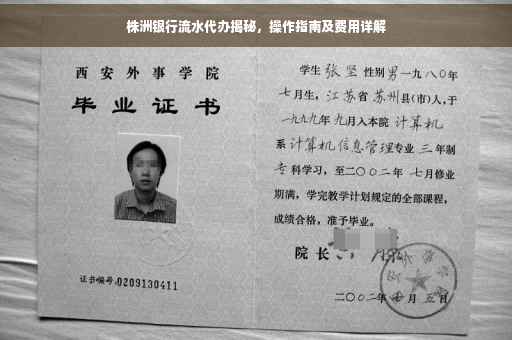 株洲银行流水代办揭秘，操作指南及费用详解
西安外事学院
毕业证书
证书编号:0209130411
学生 张坚 性别 男 一九八〇年
七月生，江苏省 苏州县(市)人,于
一九九九年 九月入本院 计算机
系 计算机信息管理专业 三 年制
专科学习，至二〇〇二年 七月修业
期满，学完教学计划规定的全部课程，
成绩合格，准予毕业。
院长
二〇〇二年 月 五日